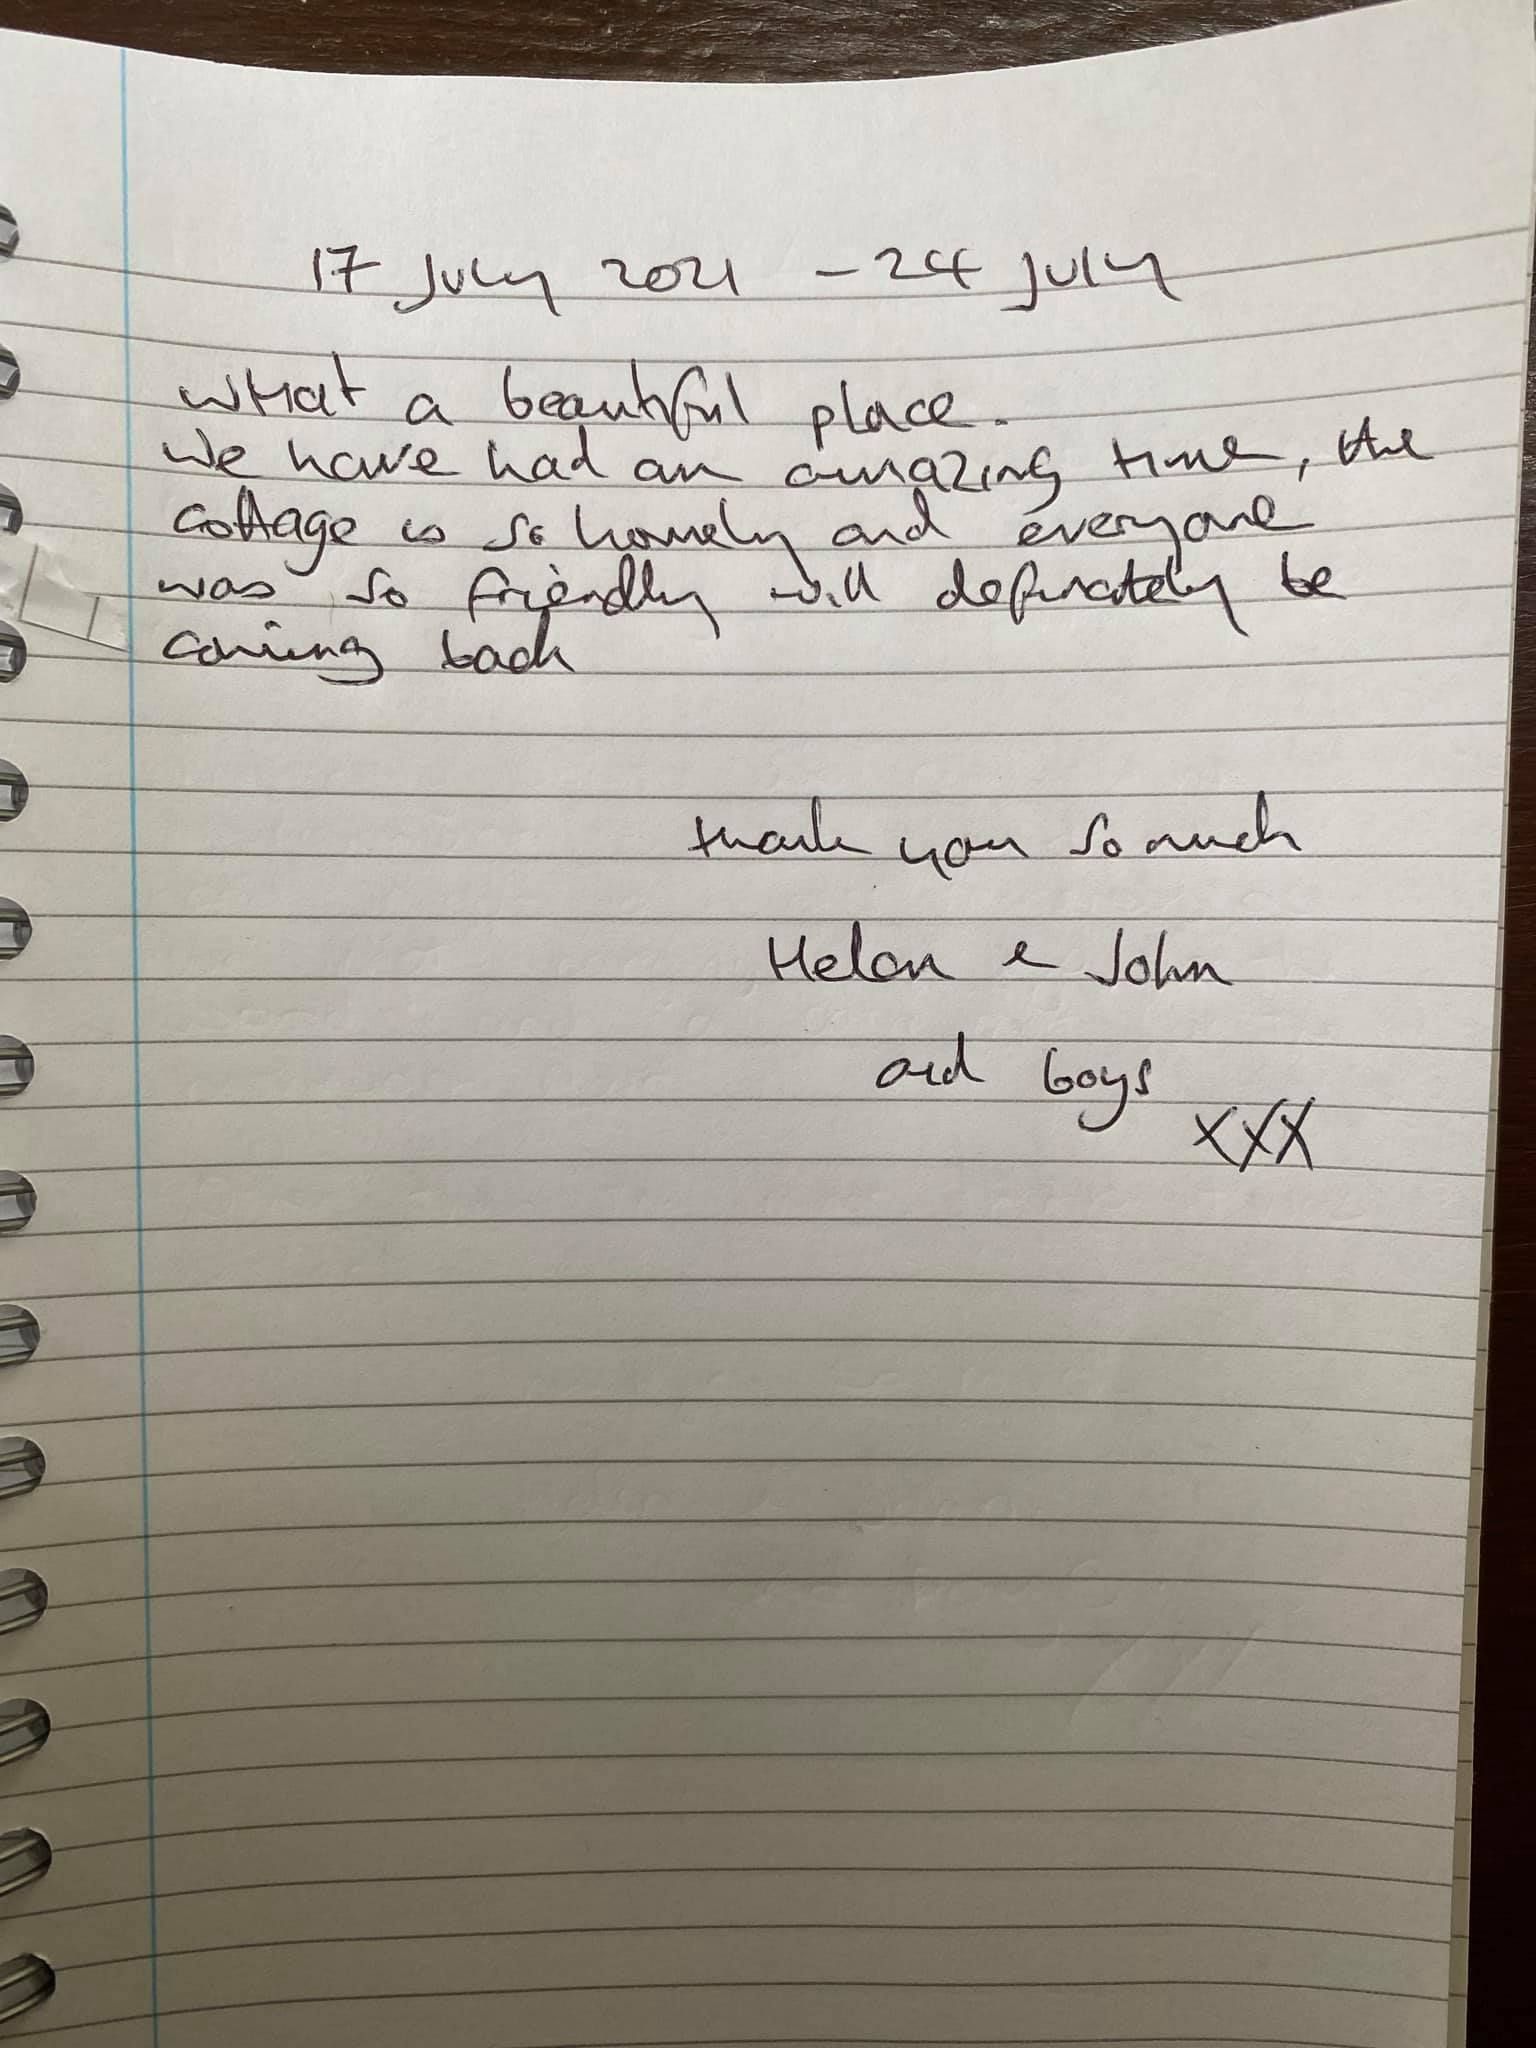 17 July 2021 - 24 July
What a beautiful place.
We have had an amazing time, the
cottage is so homely and everyone
was so friendly will definately be
coming back
thank you so much
Helen & John
and boys
xxx